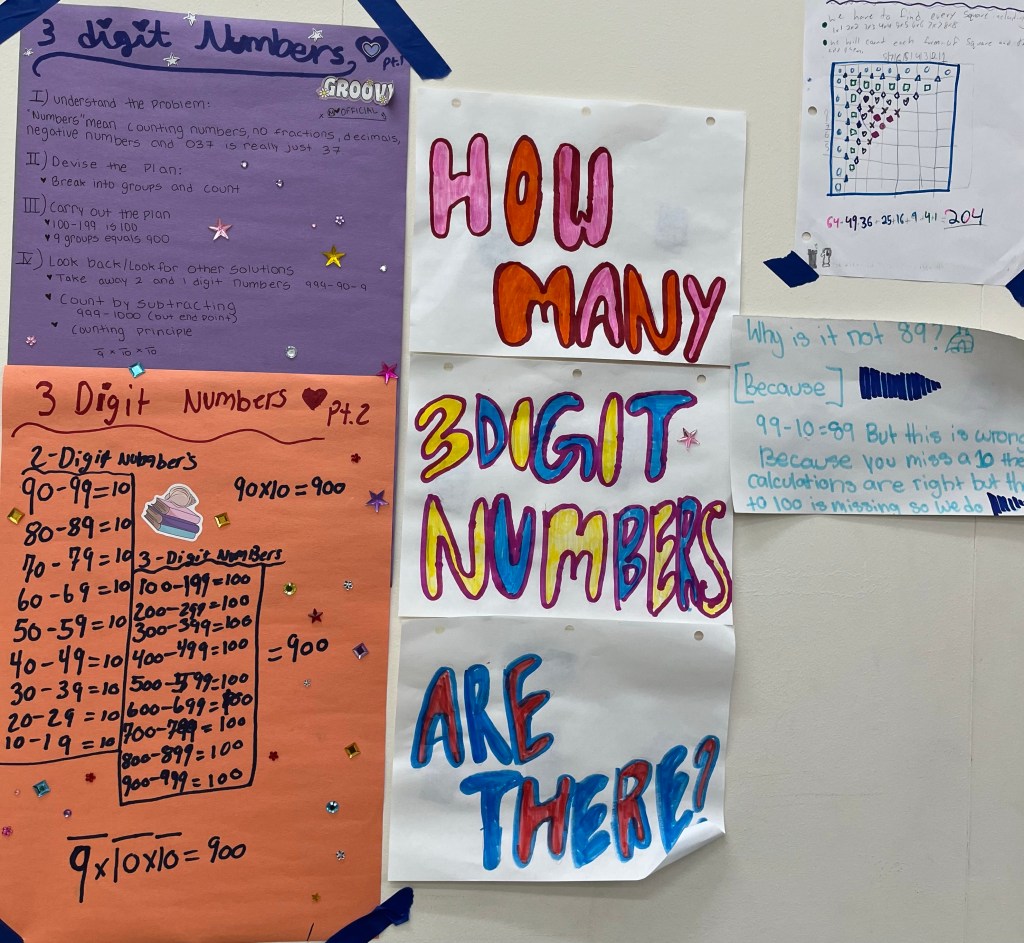 3 digit Numbers,
Pt.1
GROOVY
OFFICIAL
I) understand the problem:
"Numbers" mean counting numbers, no fractions, decimals,
negative numbers and "037 is really just 37
II) Devise the Plan:
♥ Break into groups and count
III) Carry out the plan
♥ 100-199 is 100
♥ 9 groups equals 900
IV) Look back/Look for other solutions
♥ Take away 2 and 1 digit numbers 999-90-9
♥ Count by subtracting
999-1000 (out end point)
♥ Counting principle
9 x 10 x 10
3 Digit Numbers ♥ Pt.2
2-Digit Number's
90-99=10
80-89=10
70-79=10
60-69=10
50-59=10
40-49=10
30-39=10
20-29=10
10-19=10
90x10=900
3-Digit Numbers
100-199=100
200-299=100
300-399=100
400-499=100
500-599=100
600-699=100
700-799=100
800-899=100
900-999=100
=900
9x10x10=900
HOW
MANY
3 DIGIT
NUMBERS
ARE
THERE?
we have to find every square
we will count each form of square and
64+49+36+25+16+9+4+1=204
Why is it not 89?
[Because]
99-10=89 But this is wrong
Because you miss a 10 the
calculations are right but th
to 100 is missing so we do